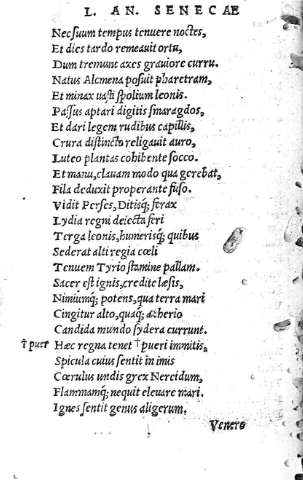 L. AN. SENECAE
Nec suum tempus tenuere noctes,
Et dies tardo remeauit ortu,
Dum tremunt axes grauiore curru.
Natus Alcmena posuit pharetram,
Et minax uasti spolium leonis.
Passus aptari digitis smaragdos,
Et dari legem rudibus capillis,
Crura distincto religauit auro,
Luteo plantas cohibente socco.
Et manu, clauam modo qua gerebat,
Fila deduxit properante fuso.
Vidit Perses, Ditisq; ferax
Lydia regni deiecta feri
Terga leonis, humerisq; quibus
Sederat alti regia cœli
Tenuem Tyrio stamine pallam.
Sacer est ignis, credite læsis,
Nimiumq; potens, qua terra mari
Cingitur alto, quaq; ætherio
Candida mundo sydera currunt.
† puer Hæc regna tenet † pueri immitis,
Spicula cuius sentit in imis
Cœrulus undis grex Nereidum,
Flammamq; nequit eleuare mari.
Ignes sentit genus aligerum.
Venere